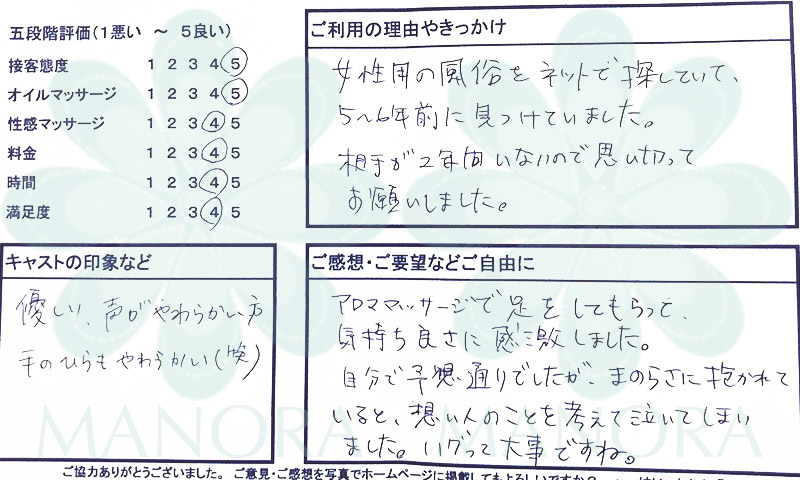 五段階評価(1悪い ～ 5良い)
接客態度 1 2 3 4 5
オイルマッサージ 1 2 3 4 5
性感マッサージ 1 2 3 4 5
料金 1 2 3 4 5
時間 1 2 3 4 5
満足度 1 2 3 4 5
ご利用の理由やきっかけ
女性用の風俗をネットで探していて、
5~6年前に見つけていました。
相手が2年間いないので思い切って
お願いしました。
キャストの印象など
優しい、声がやわらかい方
手のひらもやわらかい(笑)
ご感想・ご要望などご自由に
アロママッサージで足をしてもらって、
気持ち良さに感激しました。
自分で予想通りでしたが、まのらさに抱かれて
いると、想い人のことを考えて泣いてしまい
ました。ハグって大事ですね。
MANORA
MANORA
ご協力ありがとうございました。ご意見・ご感想を写真でホームページに掲載してもよろしいですか?